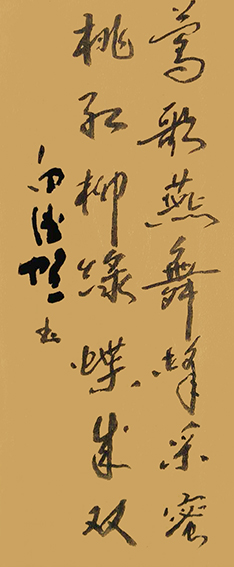 莺歌燕舞蜂采蜜
桃红柳绿蝶成双
白
书